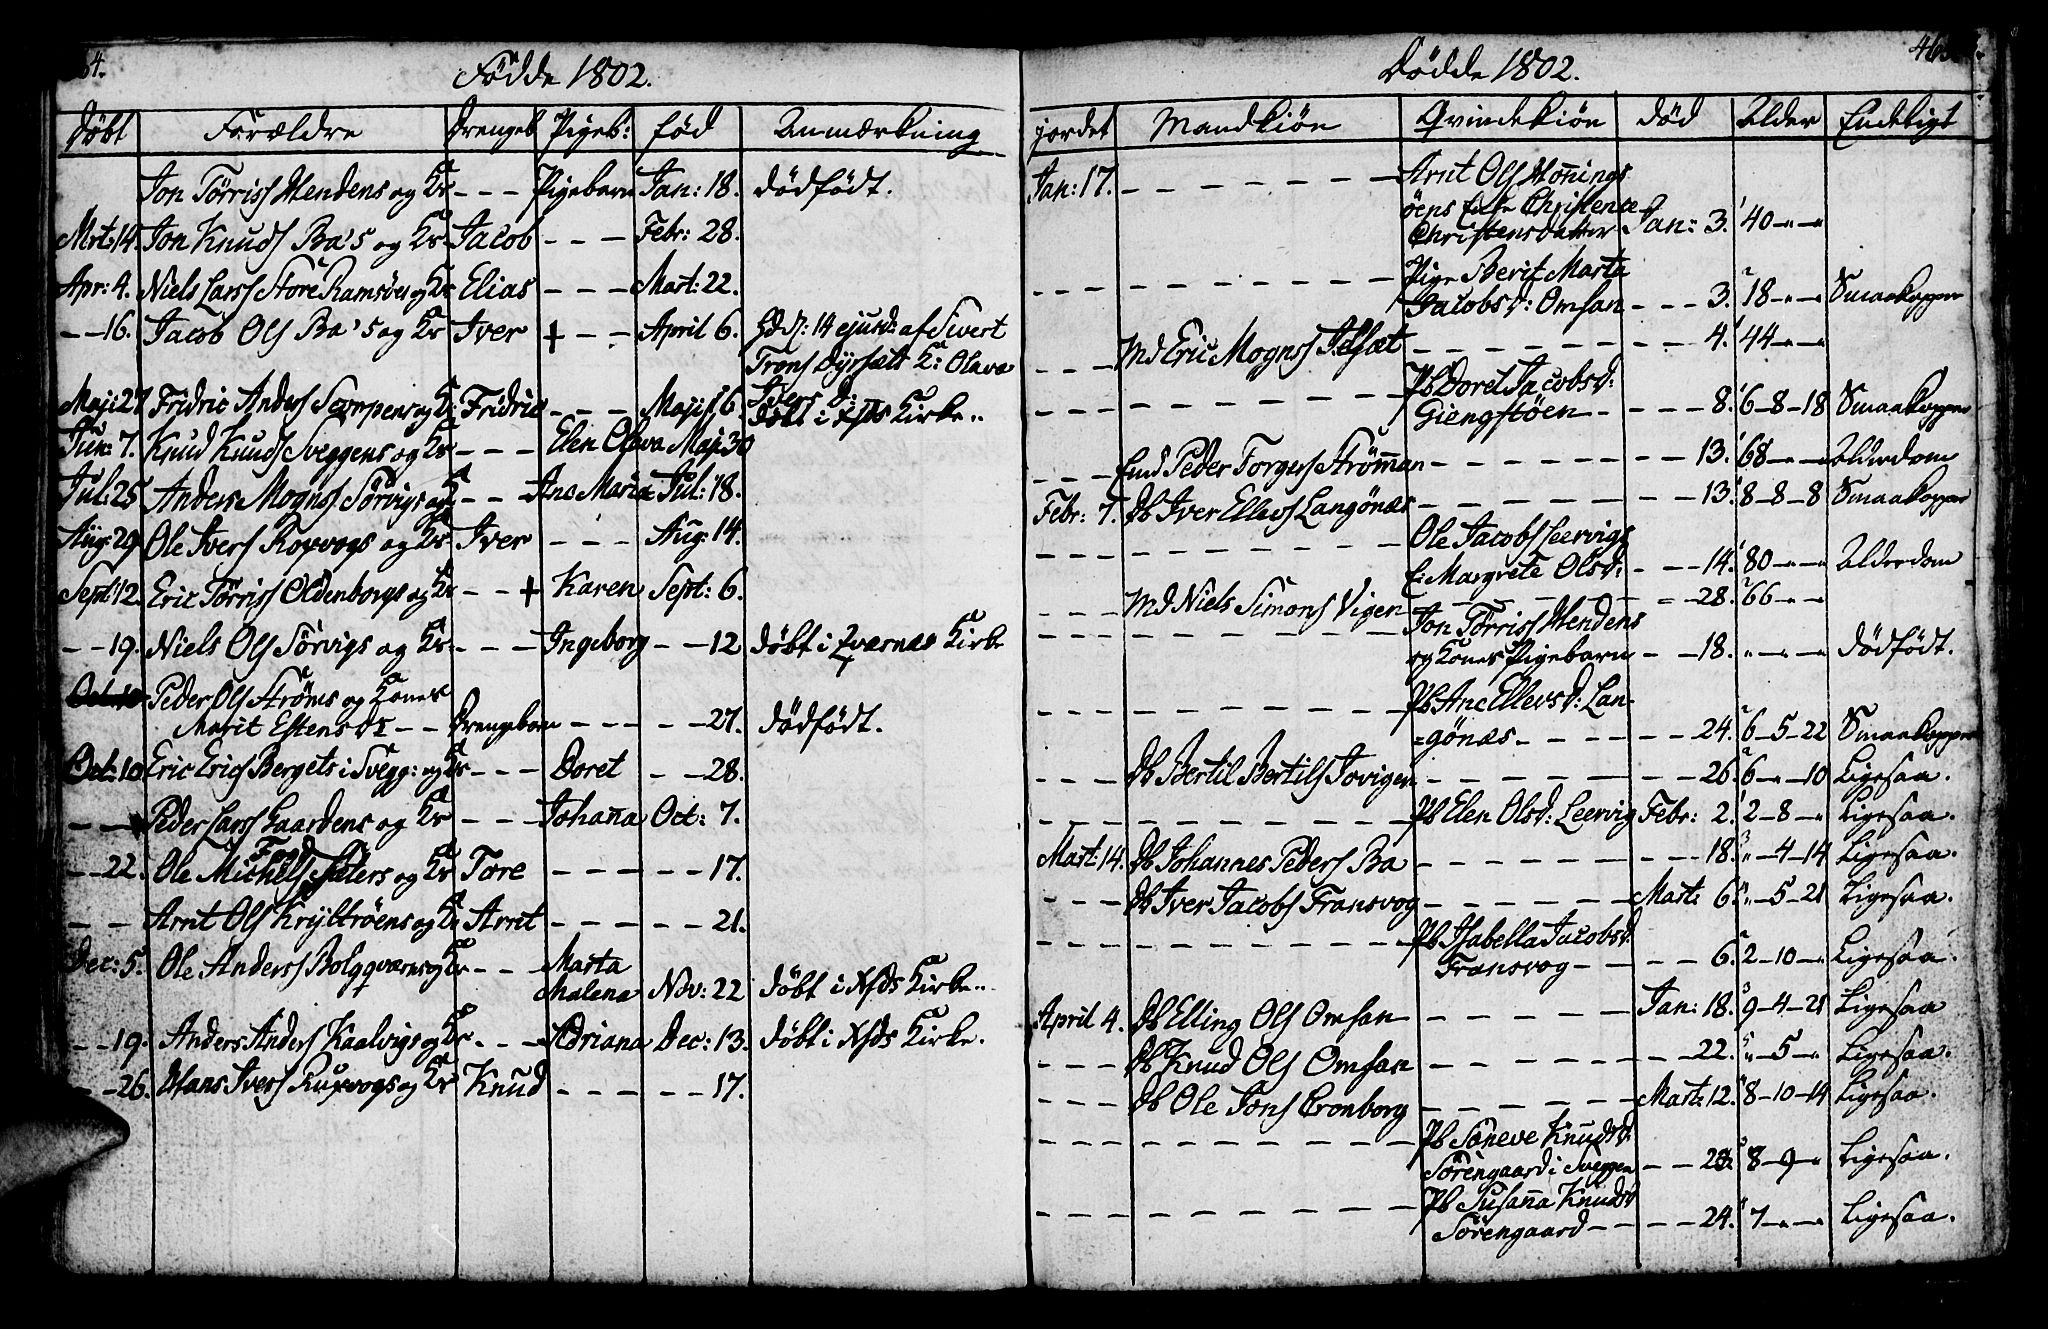 64.
Födde 1802.
Döbt Forældre Drengeb Pigeb: född Anmærkning
Jon Törriss Hendens og K: - - - Pigebarn Jan: 18. dödfödt.
Mrt: 14. Jon Knuds Ba's og K: Jacob - - - Febr: 28.
Apr: 4. Niels Larss Store Ramsöes og K: Elias - - - Mart: 22.
- - 16. Jacob Ols Ba's og K: Iver + - - April 6. Hd M: 14 ejusd: af Sivert
Trons Dyrsæt K: Olava
Ivers D:
Maj: 27 Fridric Anders og K: Fridric - - - Maji 16. döbt i Xsds Kirke..
Jun: 7. Knud Knuds Sveggens og K: - - - Elen Olava Maj: 30
Jul: 25 Anders Mogns Sörvigs og K: - - - Ane Maria Jul: 18.
Aug: 29 Ole Ivers Roxvogs og K: Iver - - - Aug: 14.
Sept: 12. Eric Törriss Oldenborgs og K: - - + Karen Sept: 6.
- - 19. Niels Ols Sörvigs og K: - - - Ingeborg - - 12 döbt i Qværnes Kirke
Oct: 10 Peder Ols Ströms og Kones
Marit Estensdr - - Drengebarn - - - - - 27. dödfödt.
Oct: 10 Eric Erics Bergets i Svegg: og K: - - - Doret - - 28.
- - Peder Lars Gaardens og K: - - - Johana Oct: 7.
- - 22. Ole Michels Sæters og K: Tore - - - - - 17.
- - Arnt Ols Kryltröens og K: Arnt - - - - - 21.
Dec: 5. Ole Anders Bolgqværns og K: - - - Marta
Malena Nov: 22 döbt i Xsds Kirke..
- - 19. Anders Anders Kaalvigs og K: - - - Adriana Dec: 13. döbt i Xsds Kirke.
- - 26. Hans Ivers Ruxvogs og K: Knud - - - - - 17.
Dödde 1802.
jordet Mandkiön Qvindekiön död Alder Endeligt
Jan: 17. - - - Arnt Ols Hönings
öens Enke Christence
Christensdatter Jan: 3. 40 - " - "
- - - Pige Berit Marta
Jacobsd: Omsan - - - 3. 18 - " - " Smaakopper
- - - Md Eric Mogns - - - 4. 44 - " - "
- - - Pb Doret Jacobsd:
Giengstöen - - - 8. 6 - 8 - 18 Smaakopper
- - - Emd Peder Forgers Strömman - - - 13. 68 - " - " Alderdom
Febr: 7. Db Iver Ellevs Langönæs - - - 13. 8 - 8 - 8 Smaakopper
- - - Ole Jacobs Leervigs
E: Margrete Olsd: - - 14. 80 - " - " Alderdom
- - - Md Niels Simons Vigen - - - 28. 66 - " - "
- - - Jon Törriss Hendens
og Kones Pigebarn - - 18. " - " - " dödfödt.
- - - Pb Ane Ellevsd: Lan-
=gönæs - - - 24. 6 - 5 - 22 Smaakopper
- - - Db Bertil Bertils Tovigen - - - 26 6 - " - 10 Ligesaa.
- - - Pb Elen Olsd: Leervig Febr: 2. 2 - 8 - " Ligesaa.
Mart: 14. Db Johannes Peders Ba - - - 18. " - 4 - 14 Ligesaa.
- - - Db Iver Jacobs Fransvog - - - Mart: 6 " - 5 - 21 Ligesaa.
- - - Pb Isabella Jacobsd:
Fransvog - - - 6. 2 - 10 - " Ligesaa.
April 4. Db Elling Ols Omsan - - - Jan: 18. 9 - 4 - 21 Ligesaa
- - - Db Knud Ols Omsan - - - 22. " - 5 - " Ligesaa.
- - - Db Ole Jons Cronborg - - - Mart: 12. 8 - 10 - 14 Ligesaa.
- - - Pb Söneve Knudsd:
Sörengaard i Sveggen - - 8 - 9 - " Ligesaa.
- - - Pb Susanna Knudsd
Sörengaard - - - 24. 7 - " - " Ligesaa.